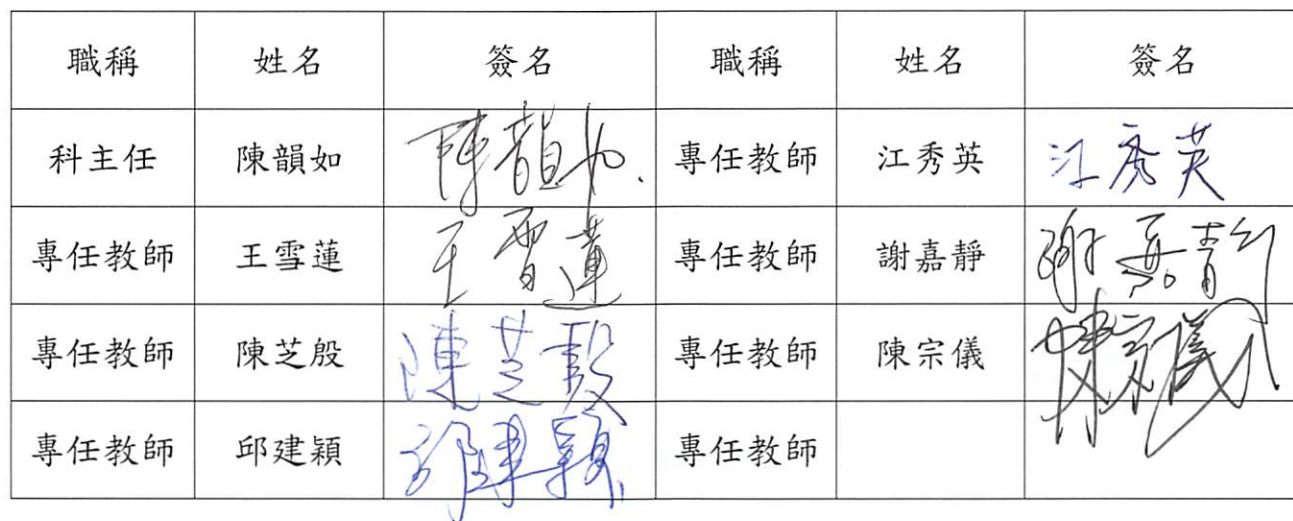 職稱 姓名 簽名 職稱 姓名 簽名
科主任 陳韻如 陳韻如 專任教師 江秀英 江秀英
專任教師 王雪蓮 王雪蓮 專任教師 謝嘉靜 謝嘉靜
專任教師 陳芝殷 陳芝殷 專任教師 陳宗儀 陳宗儀
專任教師 邱建穎 邱建穎 專任教師